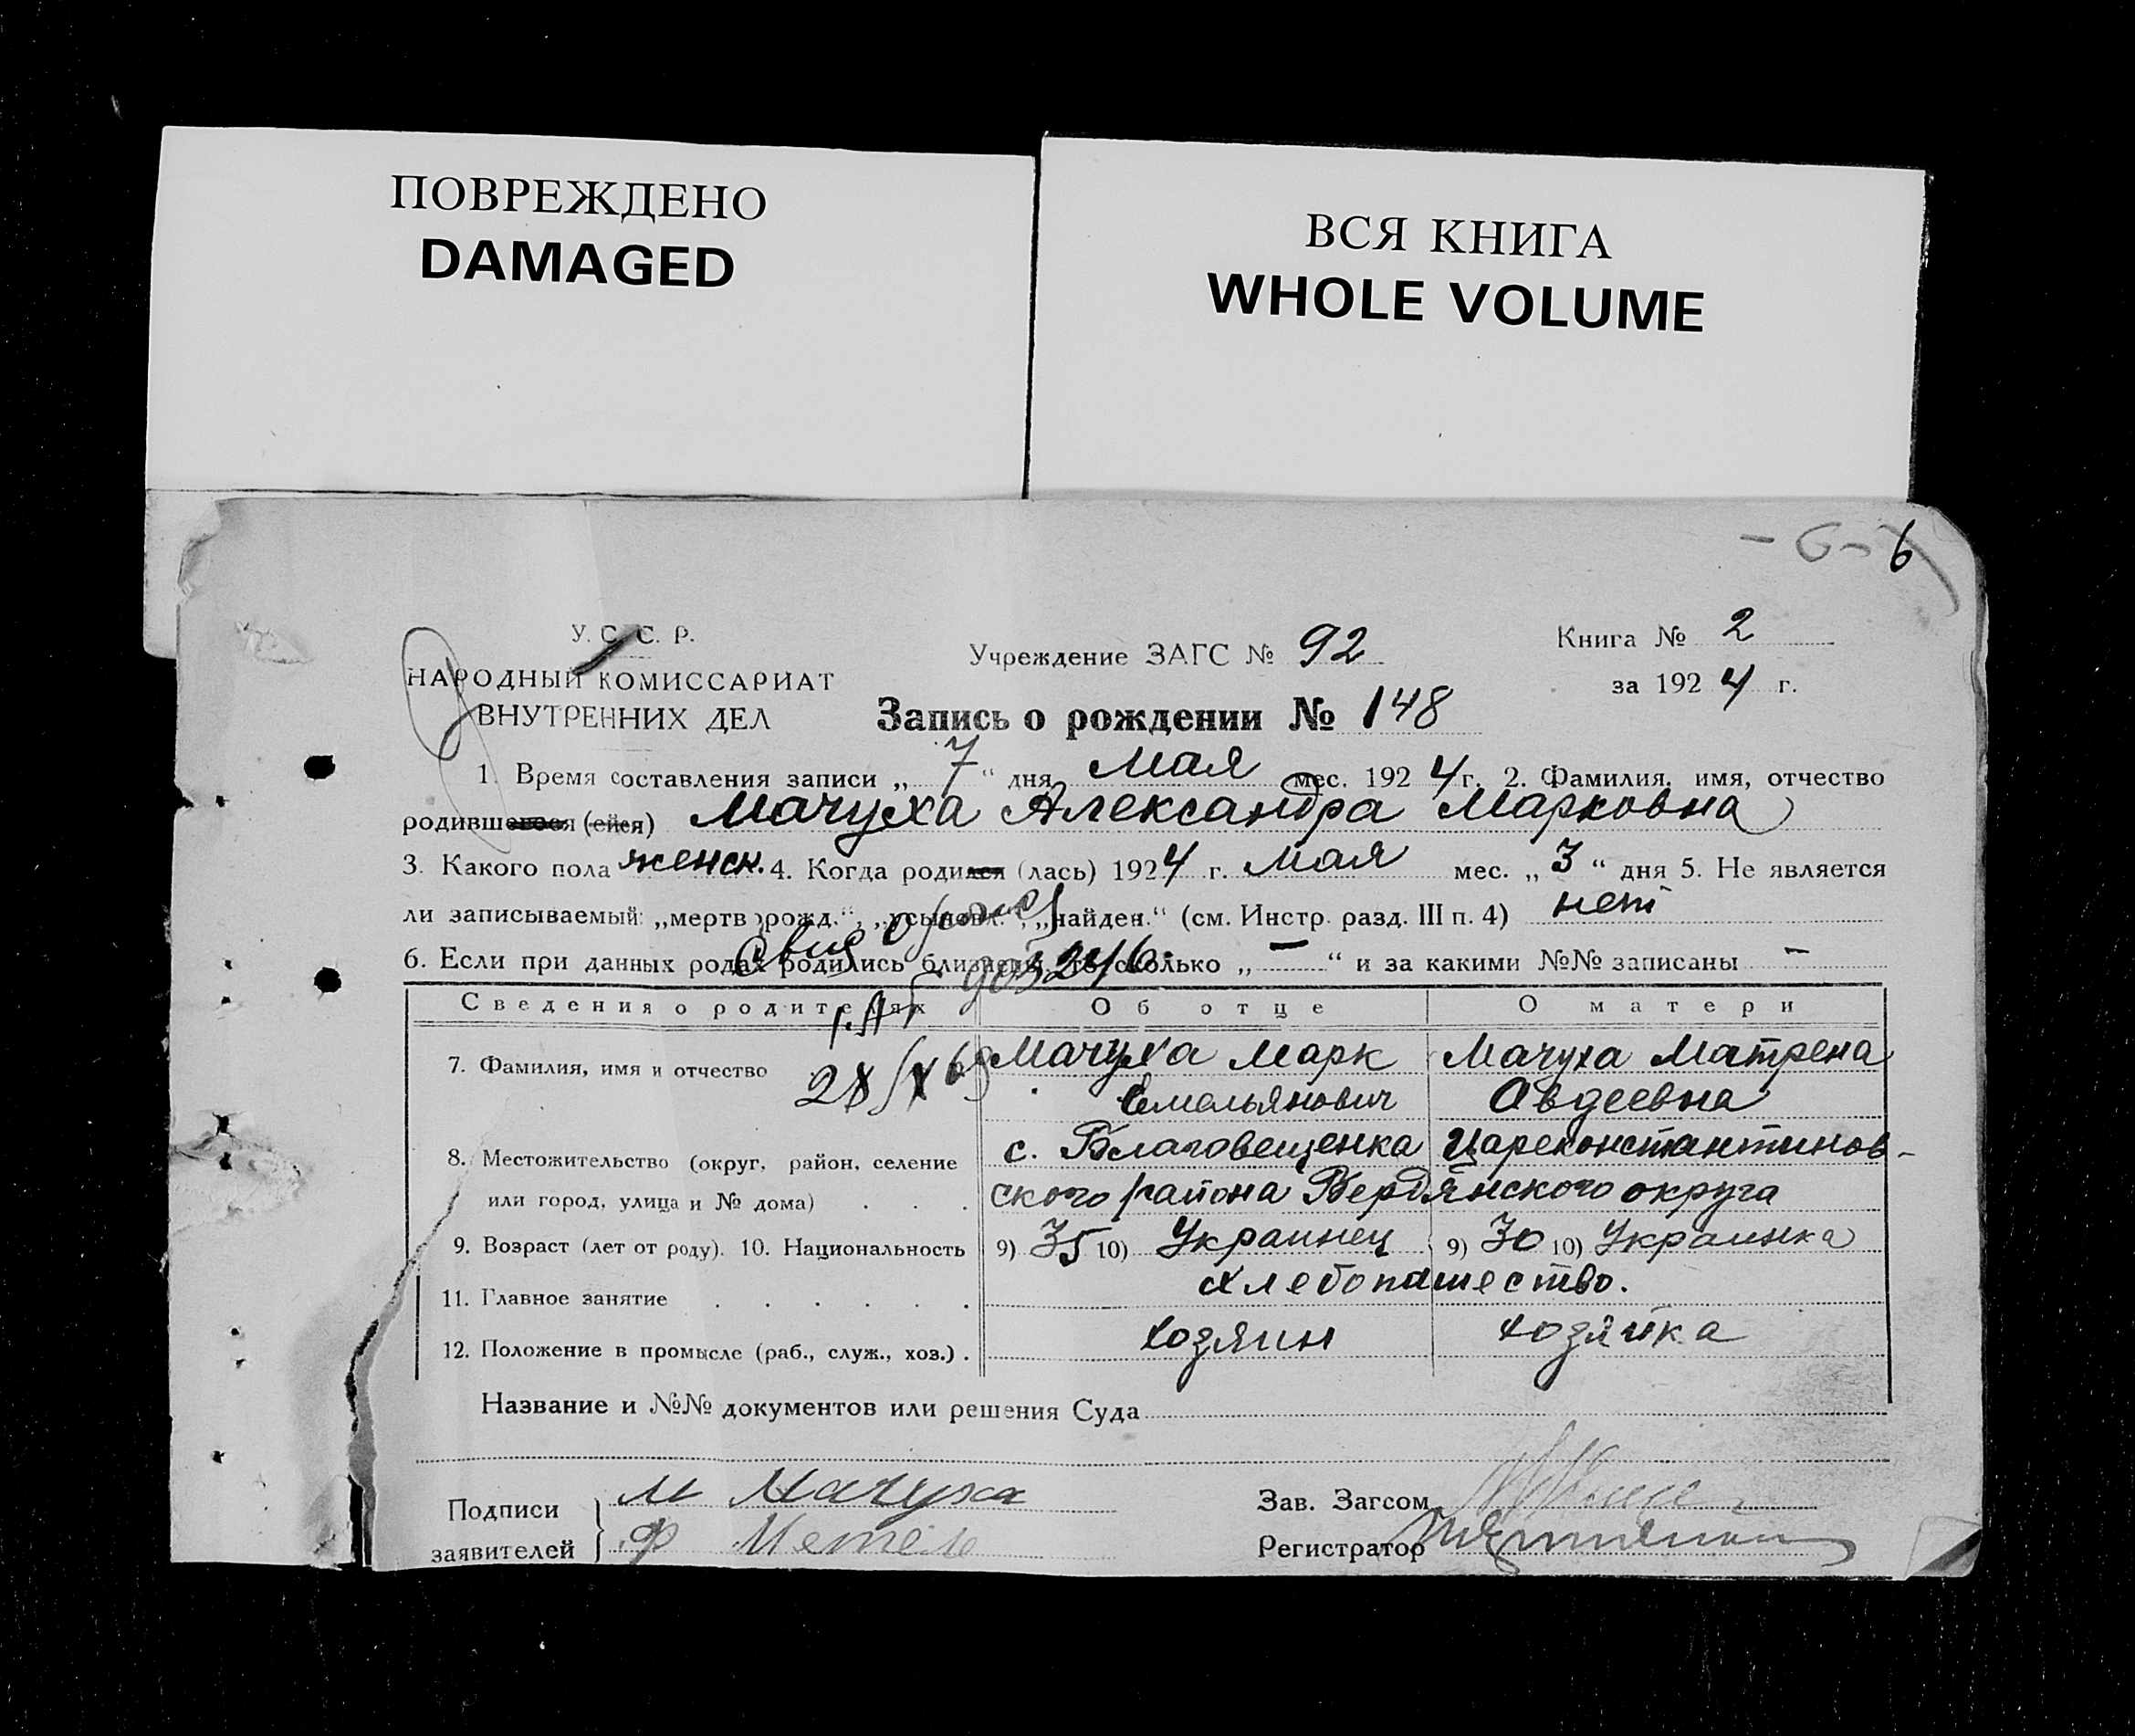 ПОВРЕЖДЕНО
DAMAGED
ВСЯ КНИГА
WHOLE VOLUME
6
У. С. С. Р.
НАРОДНЫЙ КОМИССАРИАТ
ВНУТРЕННИХ ДЕЛ
Учреждение ЗАГС № 92
Книга № 2
за 1924 г.
Запись о рождении № 148
1. Время составления записи „ 7 “ дня Мая мес. 1924 г. 2. Фамилия, имя, отчество
родившегося (ейся) Мачуха Александра Марковна
3. Какого пола женск. 4. Когда родился (лась) 1924 г. Мая мес. „ 3 “ дня 5. Не является
ли записываемый: „мертворожд.“, „усыновл.“, „найден.“ (см. Инстр. разд. III п. 4) нет
6. Если при данных родах родились близнецы, то сколько „ — “ и за какими №№ записаны —
Сведения о родителях Об отце О матери
7. Фамилия, имя и отчество Мачуха Марк Мачуха Матрена
Емельянович Авдеевна
8. Местожительство (округ, район, селение с. Благовещенка Цареконстантинов-
или город, улица и № дома) . . . ского района Бердянского округа
9. Возраст (лет от роду). 10. Национальность 9) 35 10) Украинец 9) 30 10) Украинка
11. Главное занятие . . . . . . Хлебопашество.
12. Положение в промысле (раб., служ., хоз.) . хозяин хозяйка
Название и №№ документов или решения Суда
Подписи М Мачуха
заявителей Ф
Зав. Загсом
Регистратор